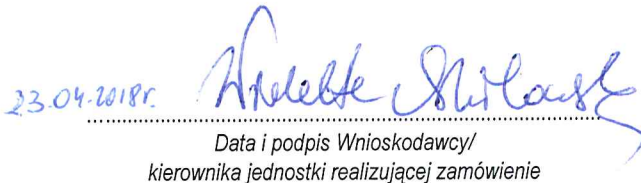 23.04.2018r. Wioletta
Data i podpis Wnioskodawcy/
kierownika jednostki realizującej zamówienie